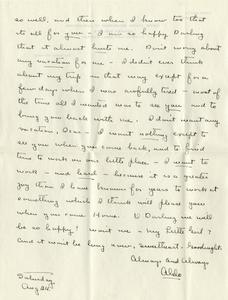 so well, and then when I know too that
its all for you - I am so happy Darling
that it almost hurts me. Don't worry about
my vacation for me - I didn't ever think
about my trip in that way except for a
few days when I was awfully tired - most of
the time all I wanted was to see you and to
bring you back with me. I don't want any
vacation, Dear - I want nothing except to
see you when you come back, and to find
time to work on our little place - I want to
work - and hard - because it is a greater
joy than I have known for years to work at
something which I think will please you
when you come Home. O Darling we will
be so happy! won't we - my Little Girl?
And it won't be long now, sweetheart. Goodnight.
Always and Always
Aldo
Saturday
Aug 24